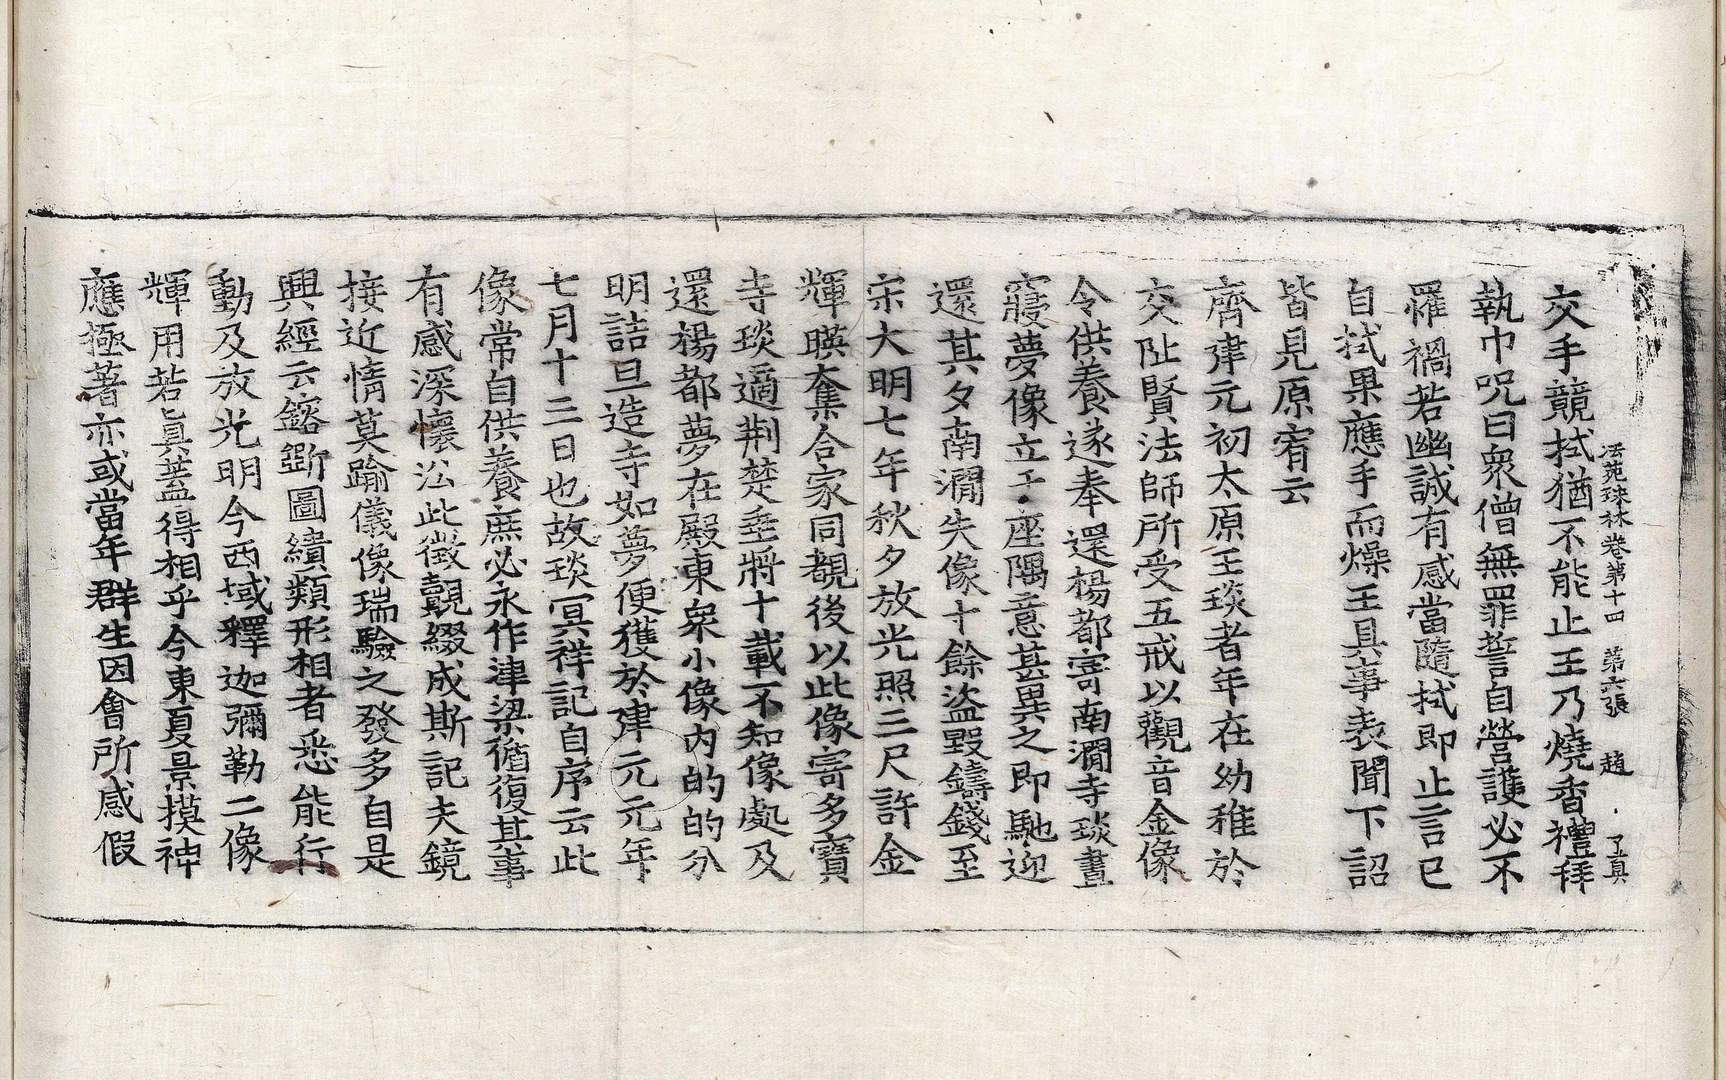 法苑珠林卷第十四 第六張 趙 了真
交手競拭猶不能止王乃燒香禮拜
執巾呪曰衆僧無罪誓自營護必不
罹禍若幽誠有感當隨拭即止言已
自拭果應手而燥王具事表聞下詔
皆見原宥云
齊建元初太原王琰者年在幼稚於
交阯賢法師所受五戒以觀音金像
令供養遂奉還楊都寄南澗寺琰晝
寢夢像立于座隅意甚異之即馳迎
還其夕南澗失像十餘盜毀鑄錢至
宋大明七年秋夕放光照三尺許金
輝暎奪合家同覩後以此像寄多寶
寺琰適荆楚垂將十載不知像處及
還楊都夢在殿東衆小像内的的分
明詰旦造寺如夢便獲於建元元年
七月十三日也故琰冥祥記自序云此
像常自供養庶必永作津梁循復其事
有感深懷㳂此徵覿綴成斯記夫鏡
接近情莫踰儀像瑞驗之發多自是
興經云鎔斲圖繢類形相者悉能行
動及放光明今西域釋迦彌勒二像
輝用若真蓋得相乎今東夏景摸神
應極著亦或當年群生因會所感假